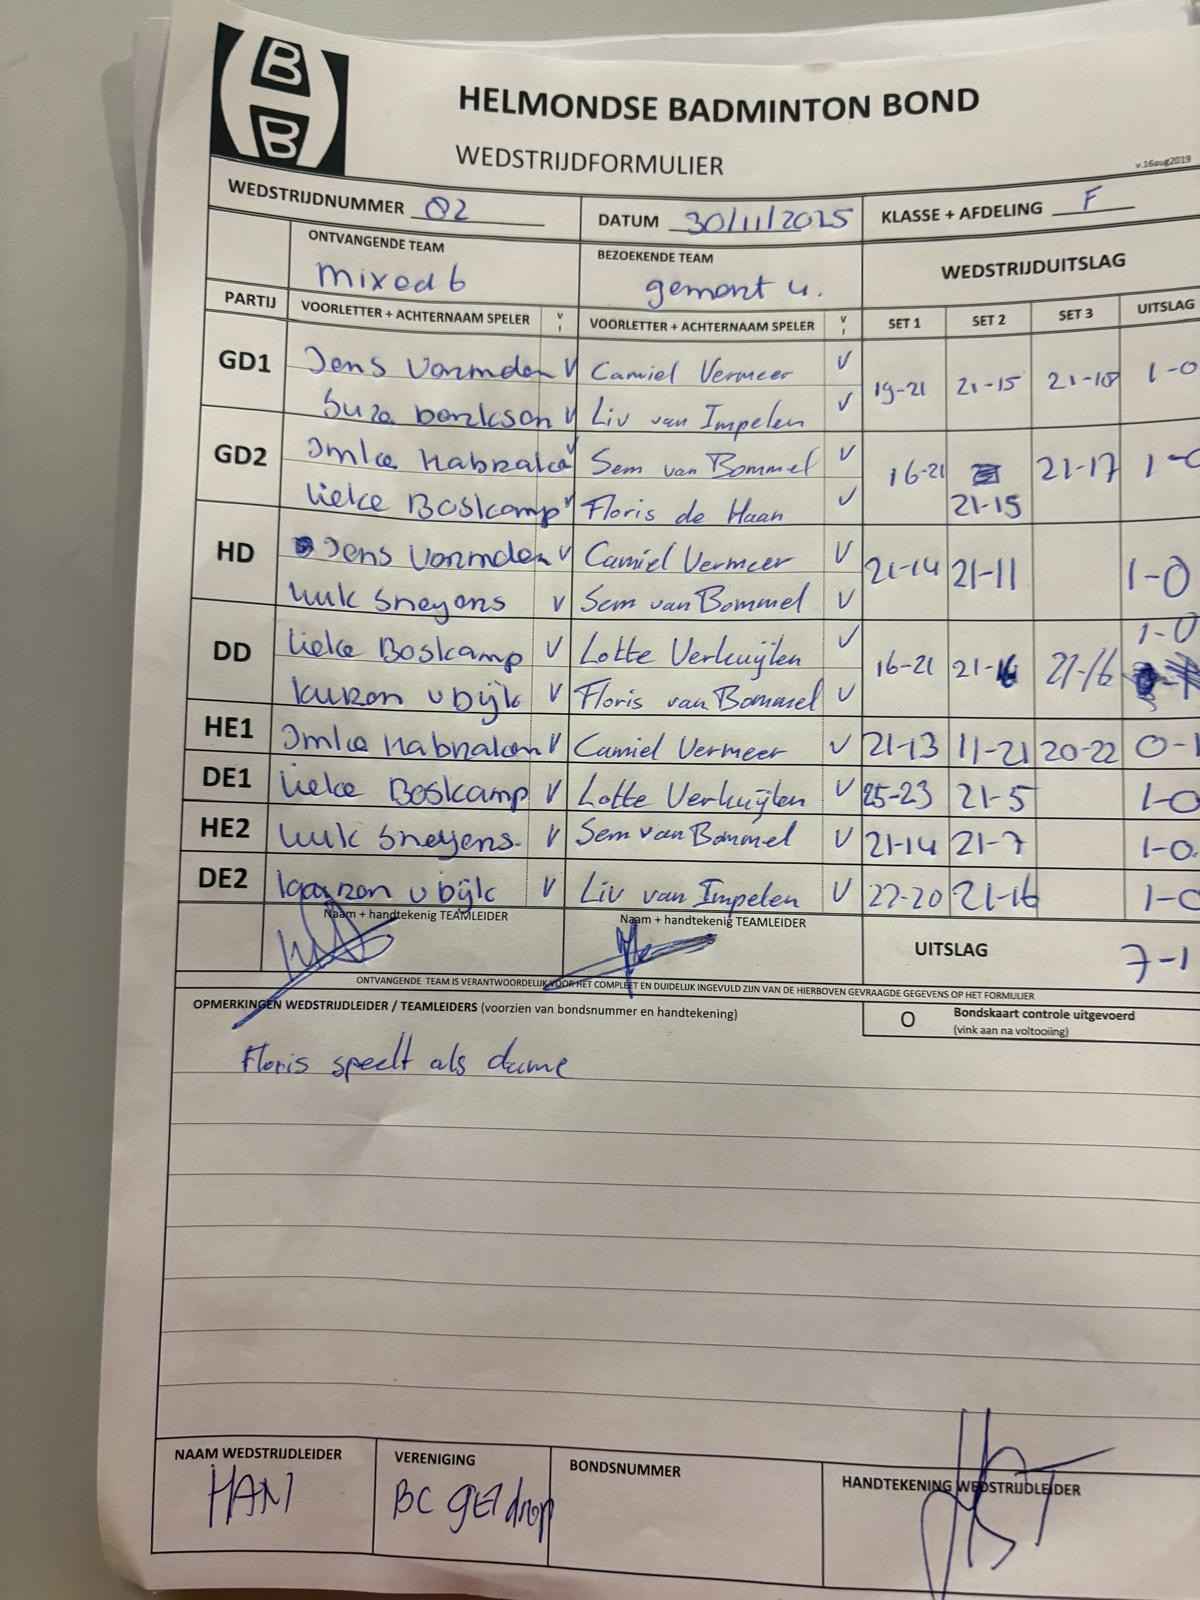 B
B
HELMONDSE BADMINTON BOND
WEDSTRIJDFORMULIER
v.16aug2019
WEDSTRIJDNUMMER 02 DATUM 30/11/2025 KLASSE + AFDELING F
ONTVANGENDE TEAM BEZOEKENDE TEAM WEDSTRIJDUITSLAG
mixed 6 gemert 4.
PARTIJ VOORLETTER + ACHTERNAAM SPELER v VOORLETTER + ACHTERNAAM SPELER v SET 1 SET 2 SET 3 UITSLAG
GD1 Jens V Camiel Vermeer V 19-21 21-15 21-18 1-0
V Liv van Impelen V
GD2 Imke v Sem van Bommel V 16-21 21-15 21-17 1-0
Lieke Boskamp v Floris de Haan V
HD Jens V Camiel Vermeer V 21-14 21-11 1-0
Luuk Sneyens V Sem van Bommel V
DD Lieke Boskamp V Lotte Verkuijlen V 16-21 21-16 21-16 1-0
v bijk V Floris van Bommel V
HE1 Imke V Camiel Vermeer V 21-13 11-21 20-22 0-1
DE1 Lieke Boskamp V Lotte Verkuijlen V 25-23 21-5 1-0
HE2 Luuk Sneyens. V Sem van Bommel V 21-14 21-7 1-0.
DE2 v bijk V Liv van Impelen V 22-20 21-16 1-0
Naam + handtekenig TEAMLEIDER Naam + handtekenig TEAMLEIDER
UITSLAG 7-1
ONTVANGENDE TEAM IS VERANTWOORDELIJK VOOR HET COMPLEET EN DUIDELIJK INGEVULD ZIJN VAN DE HIERBOVEN GEVRAAGDE GEGEVENS OP HET FORMULIER
OPMERKINGEN WEDSTRIJDLEIDER / TEAMLEIDERS (voorzien van bondsnummer en handtekening)
O Bondskaart controle uitgevoerd
(vink aan na voltooiing)
Floris speelt als dame
NAAM WEDSTRIJDLEIDER VERENIGING BONDSNUMMER HANDTEKENING WEDSTRIJDLEIDER
HAN BC geldrop